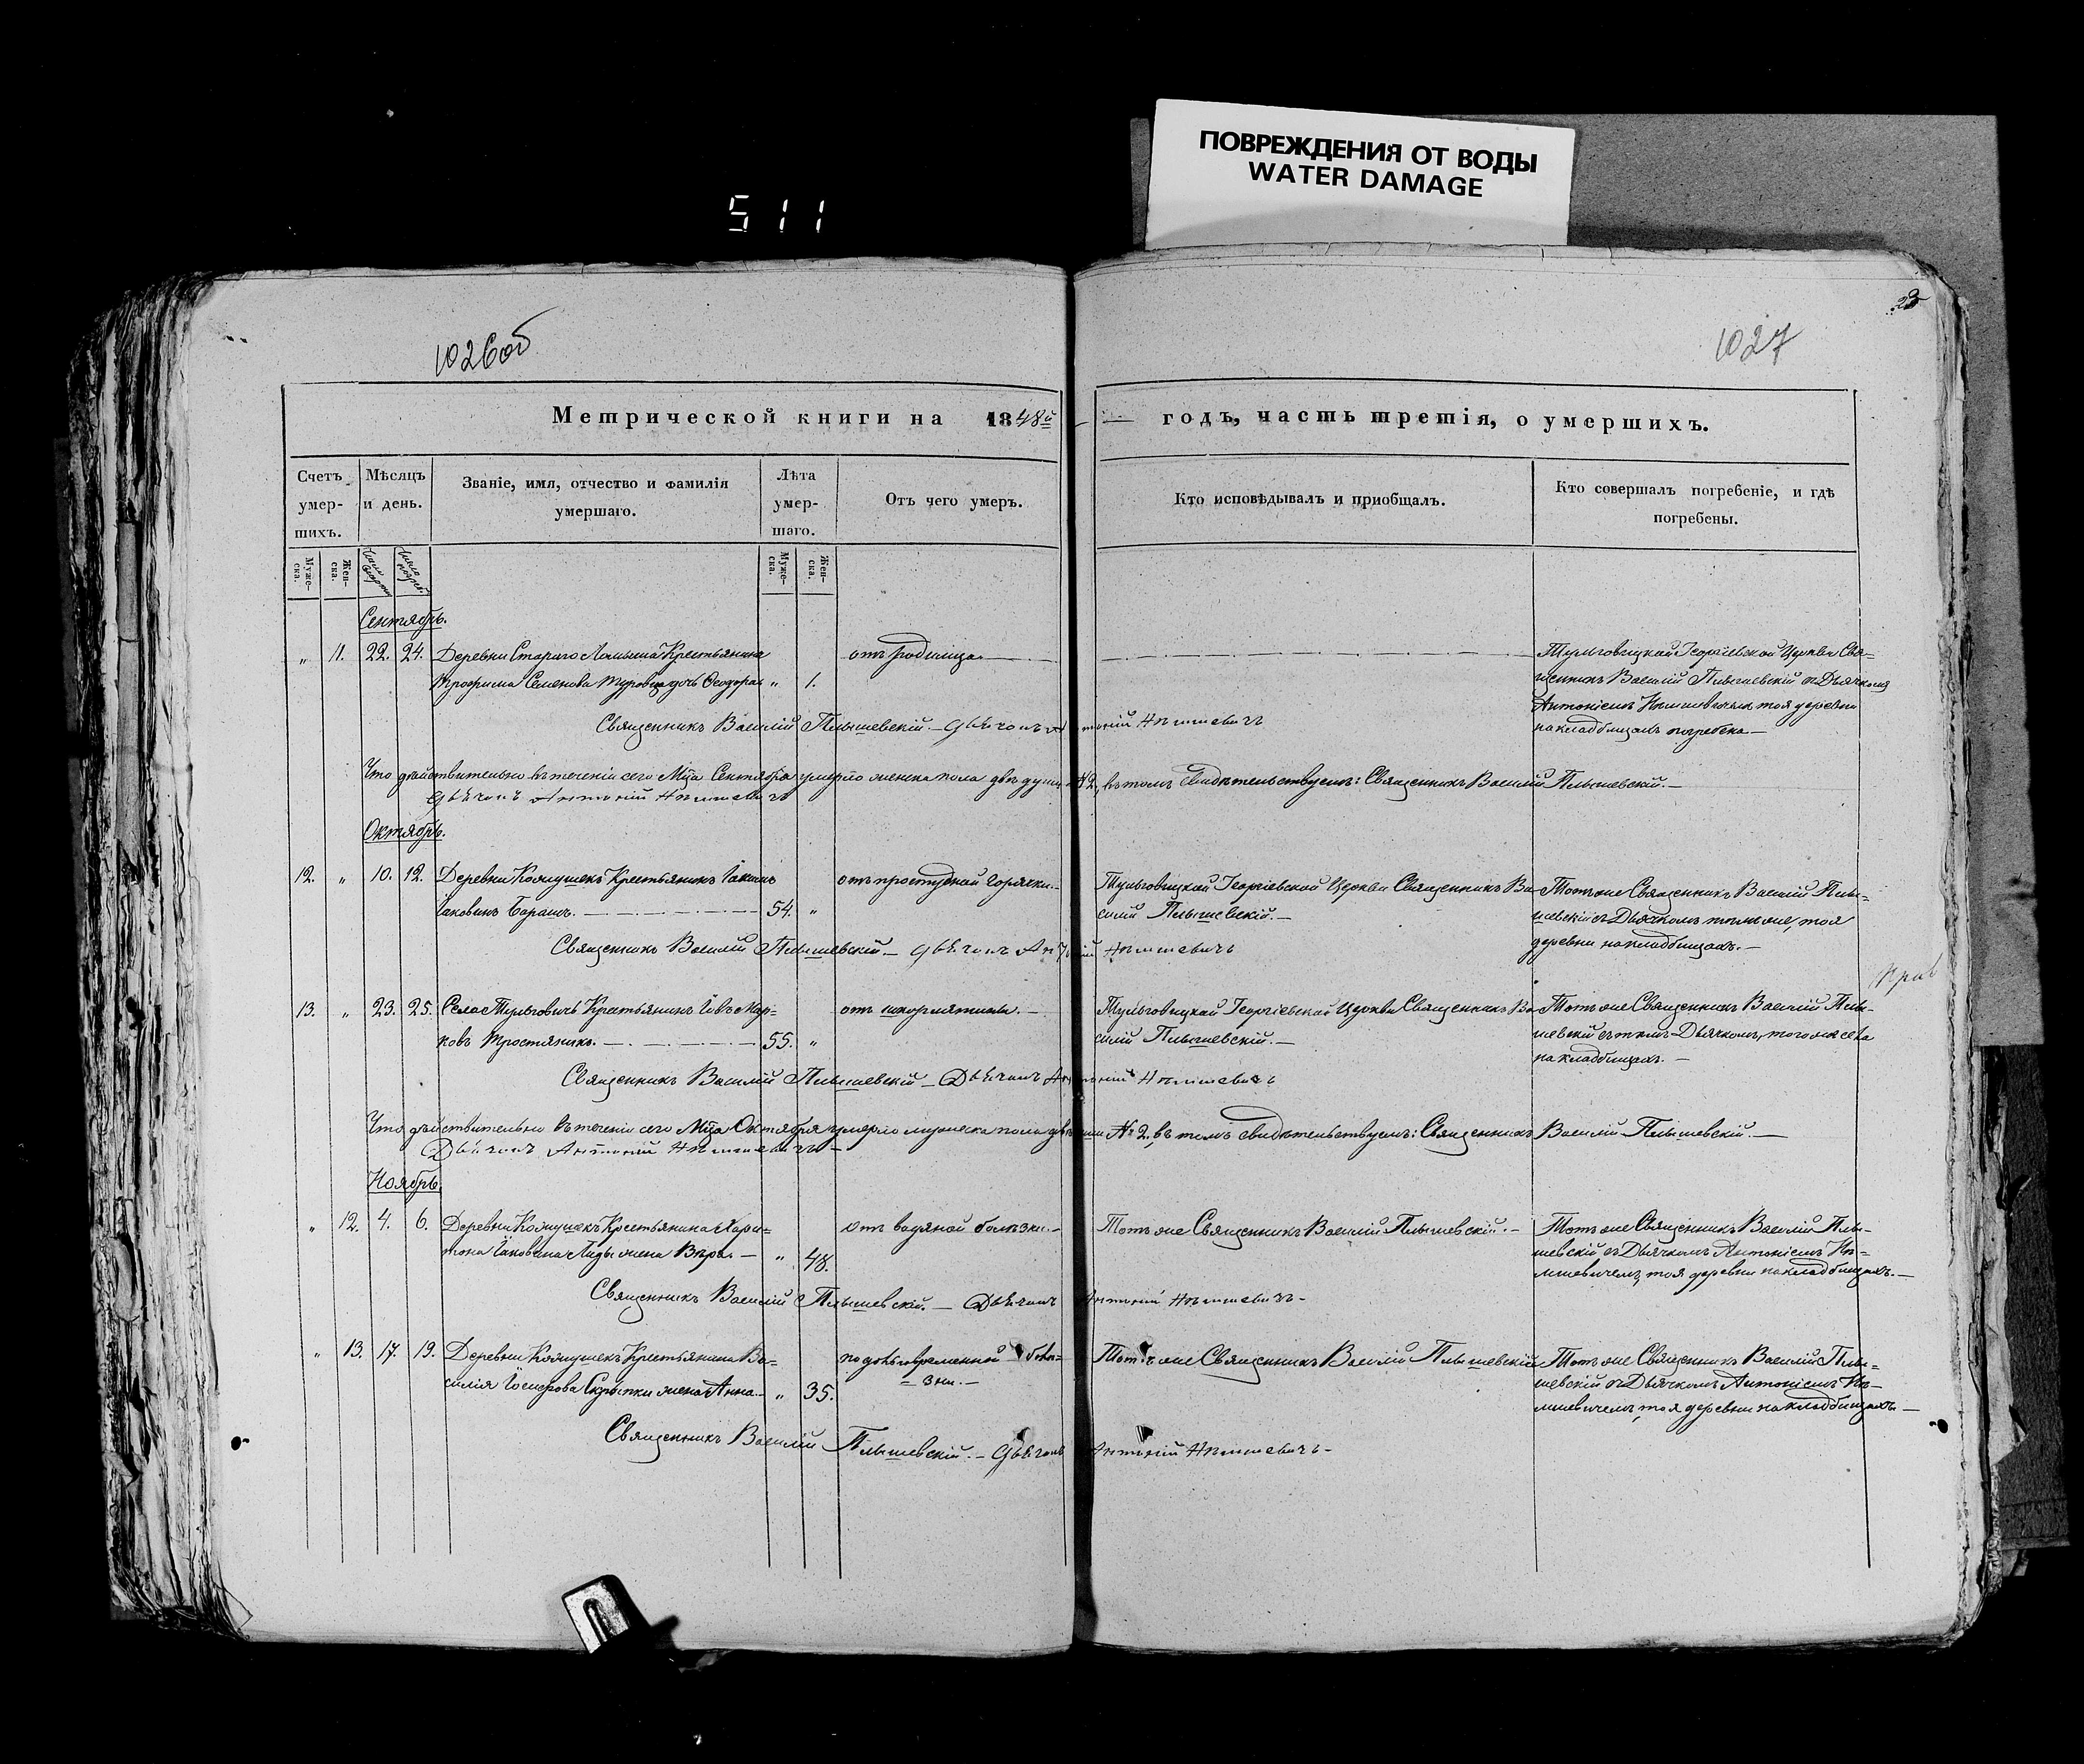 ПОВРЕЖДЕНИЯ ОТ ВОДЫ
WATER DAMAGE
511
23
1026об
1027
Метрической книги на 1848й
годъ, часть третія, о умершихъ.
Счетъ умер-шихъ.
Мѣсяцъ и день.
Званіе, имя, отчество и фамилія умершаго.
Лѣта умер-шаго.
Отъ чего умеръ.
Кто исповѣдывалъ и пріобщалъ.
Кто совершалъ погребеніе, и гдѣ погребены.
Муже-ска.
Жен-ска.
Муже-ска.
Жен-ска.
Сентябрь.
„ 11. 22. 24. Деревни Стараго Крестьянина
Трофима Семенова дочь Ѳеодора „ 1.
отъ родимца.
Георгіевской Церкви Свя-
щенникъ Василій Плышевскій съ Дьячкомъ
Антоніемъ тоя деревни
на кладбищахъ погребена
Священникъ Василій Плышевскій. Дьячокъ Антоній
Что дѣйствительно въ теченіи сего Мца Сентября умерло женска пола двѣ души № 2, въ томъ свидѣтельствуемъ: Священникъ Василій Плышевскій.
Дьячокъ Антоній
Октябрь.
12. „ 10. 12. Деревни Кожушекъ Крестьянинъ
Іаковинъ Баранъ. 54. „
отъ простудной горячки.
Георгіевской Церкви Священникъ Ва-
силій Плышевскій.
Тотъ же Священникъ Василій Плы-
шевскій съ Дьячкомъ тѣмъ же, тоя
деревни на кладбищахъ.
Священникъ Василій Плышевскій. Дьячокъ Антоній
13. „ 23. 25. Села Крестьянинъ Іовъ Мар-
ковъ Тростяникъ. 55. „
Георгіевской Церкви Священникъ Ва-
силій Плышевскій.
Тотъ же Священникъ Василій Плы-
шевскій съ тѣмъ Дьячкомъ, того же села
на кладбищахъ.
Священникъ Василій Плышевскій Дьячокъ Антоній
Что дѣйствительно въ теченіи сего Мца Октября умерло мужеска пола двѣ души № 2, въ томъ свидѣтельствуемъ: Священникъ Василій Плышевскій.
Дьячокъ Антоній
Ноябрь.
„ 12. 4. 6. Деревни Кожушекъ Крестьянина Хари-
тона Іаковина жена Вѣра. „ 48.
Отъ водяной болѣзни.
Тотъ же Священникъ Василій Плышевскій.
Тотъ же Священникъ Василій Плы-
шевскій съ Дьячкомъ Антоніемъ
тоя деревни на кладбищахъ.
Священникъ Василій Плышевскій. Дьячокъ Антоній
„ 13. 17. 19. Деревни Кожушекъ Крестьянина Ва-
силія Скрыпки жена Анна. „ 35.
по долговременной болѣ-
зни.
Тотъ же Священникъ Василій Плышевскій
Тотъ же Священникъ Василій Плы-
шевскій съ Дьячкомъ Антоніемъ
тоя деревни на кладбищахъ.
Священникъ Василій Плышевскій. Дьячокъ Антоній